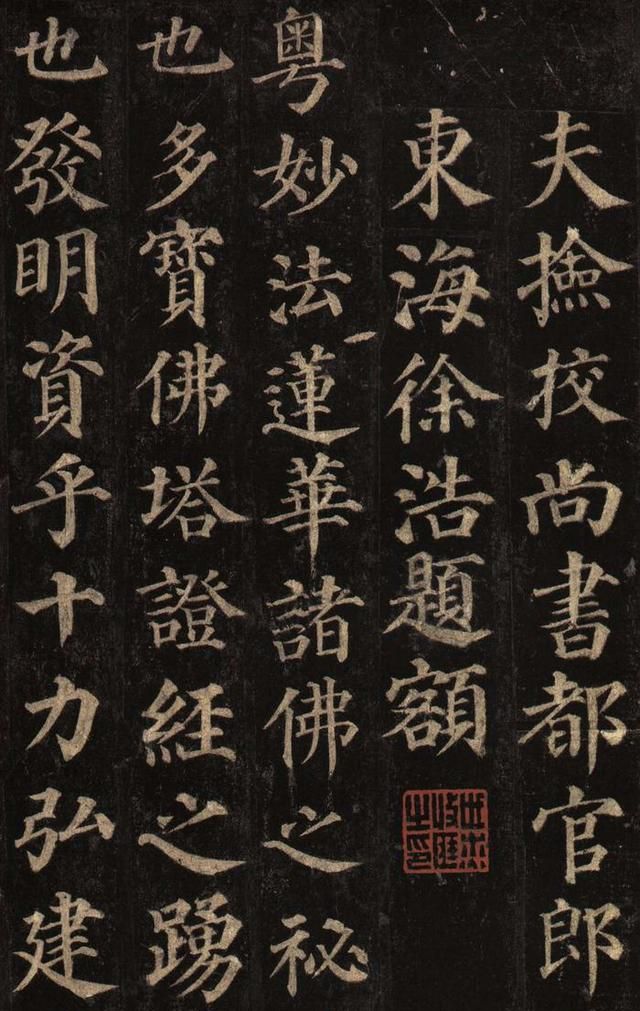 夫撿挍尚書都官郎
東海徐浩題額
粤妙法蓮華諸佛之祕
也多寶佛塔證經之踴
也發明資乎十力弘建